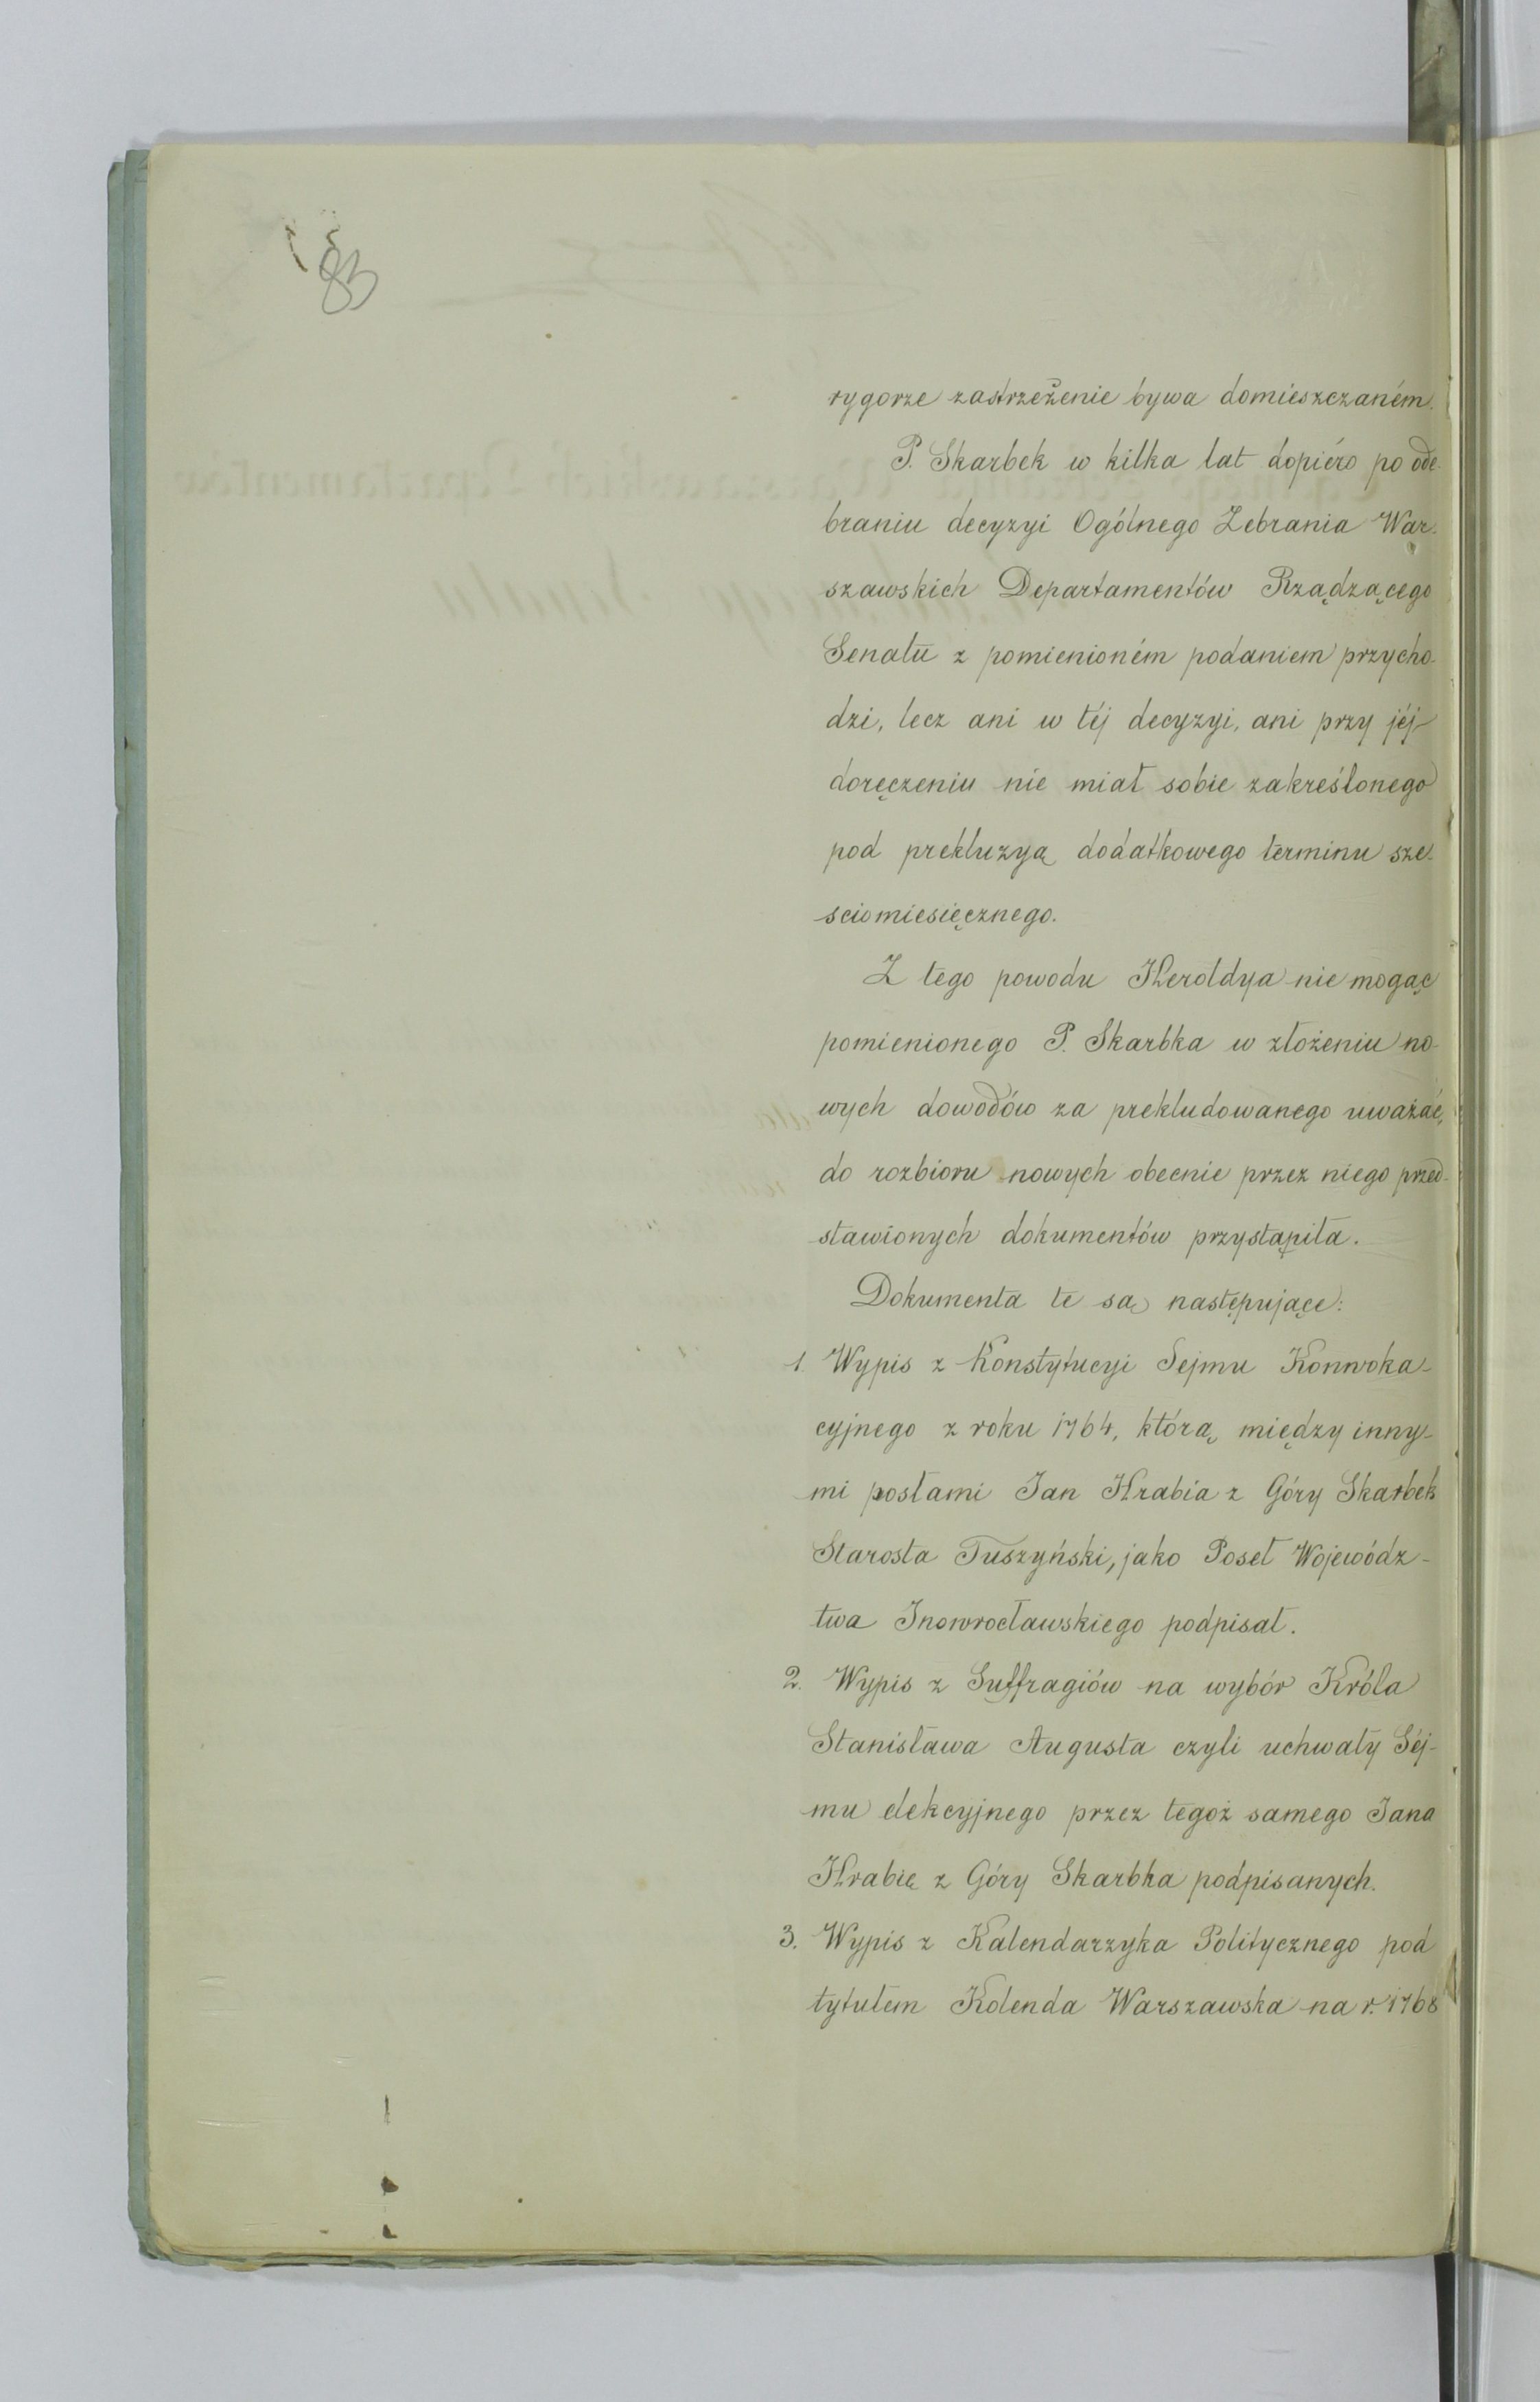 83
rygorze zastrzeżenie bywa domieszczaném.
P. Skarbek w kilka lat dopiéro po ode-
braniu decyzyi Ogólnego Zebrania War-
szawskich Departamentów Rządzącego
Senatu z pomienioném podaniem przycho-
dzi, lecz ani w téj decyzyi, ani przy jéj
doręczeniu nie miał sobie zakreślonego
pod prekluzyą dodatkowego terminu sze-
sciomiesięcznego.
Z tego powodu Heroldya nie mogąc
pomienionego P. Skarbka w złożeniu no-
wych dowodów za prekludowanego uważać,
do rozbioru nowych obecnie przez niego przed-
stawionych dokumentów przystąpiła.
Dokumenta te są następujące:
1. Wypis z Konstytucyi Sejmu Konwoka-
cyjnego z roku 1764, którą między inny-
mi posłami Jan Hrabia z Góry Skarbek
Starosta Tuszyński, jako Poseł Wojewódz-
twa Inowrocławskiego podpisał.
2. Wypis z Suffragiów na wybór Króla
Stanisława Augusta czyli uchwały Séj-
mu elekcyjnego przez tegoż samego Jana
Hrabię z Góry Skarbka podpisanych.
3. Wypis z Kalendarzyka Politycznego pod
tytułem Kolenda Warszawska na r. 1768